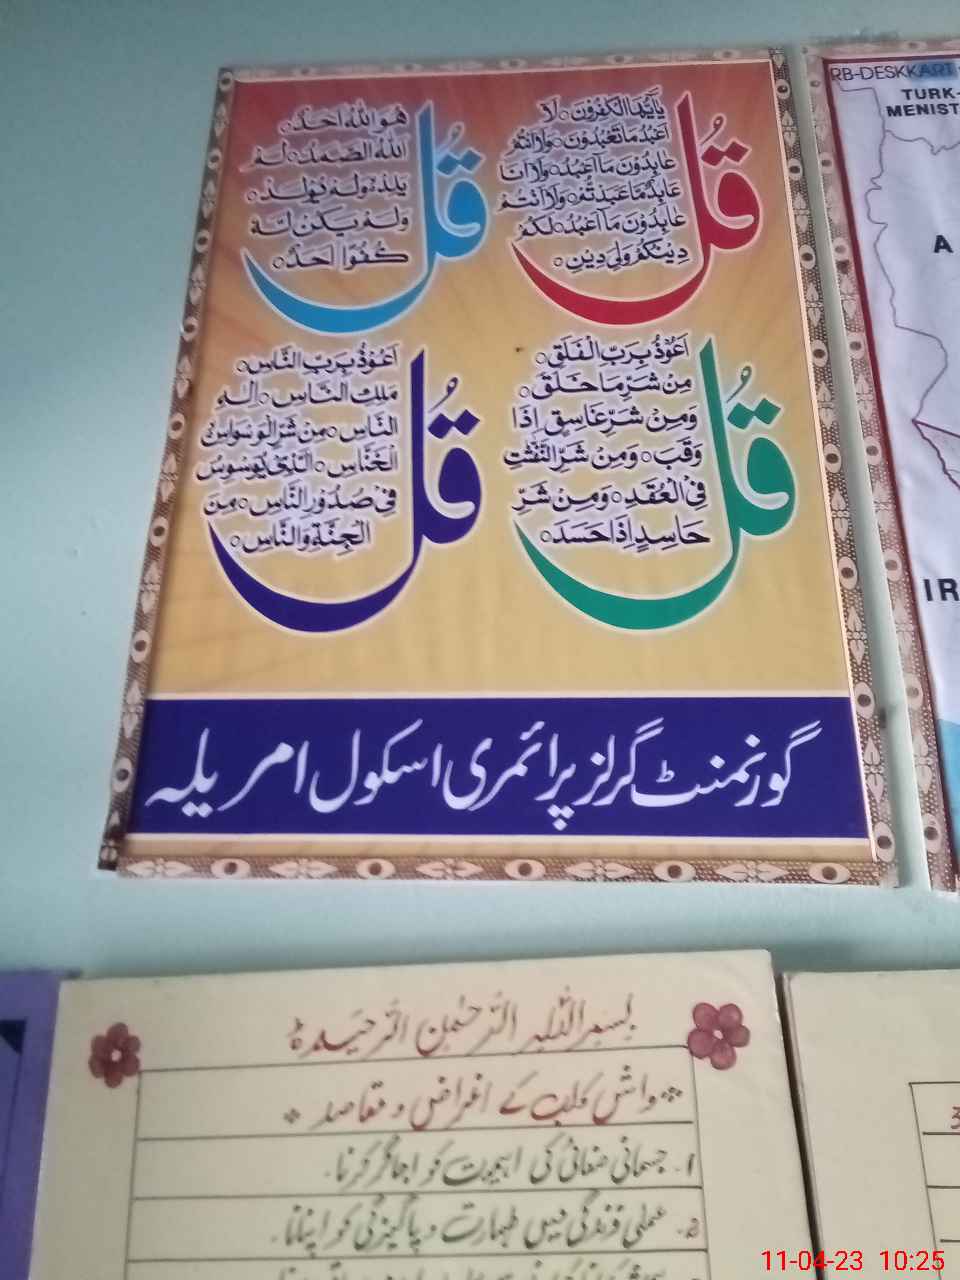 قُل
يٰٓاَيُّهَا الْكٰفِرُوْنَ ○ لَآ
اَعْبُدُ مَا تَعْبُدُوْنَ ○ وَلَآ اَنْتُمْ
عٰبِدُوْنَ مَآ اَعْبُدُ ○ وَلَآ اَنَا
عَابِدٌ مَّا عَبَدْتُّمْ ○ وَلَآ اَنْتُمْ
عٰبِدُوْنَ مَآ اَعْبُدُ ○ لَكُمْ
دِيْنُكُمْ وَلِيَ دِيْنِ ○
قُل
هُوَ اللّٰهُ اَحَدٌ ○
اَللّٰهُ الصَّمَدُ ○ لَمْ
يَلِدْ ○ وَلَمْ يُوْلَدْ ○
وَلَمْ يَكُنْ لَّهٗ
كُفُوًا اَحَدٌ ○
قُل
اَعُوْذُ بِرَبِّ الْفَلَقِ ○
مِنْ شَرِّ مَا خَلَقَ ○
وَمِنْ شَرِّ غَاسِقٍ اِذَا
وَقَبَ ○ وَمِنْ شَرِّ النَّفّٰثٰتِ
فِي الْعُقَدِ ○ وَمِنْ شَرِّ
حَاسِدٍ اِذَا حَسَدَ ○
قُل
اَعُوْذُ بِرَبِّ النَّاسِ ○
مَلِكِ النَّاسِ ○ اِلٰهِ
النَّاسِ ○ مِنْ شَرِّ الْوَسْوَاسِ
الْخَنَّاسِ ○ الَّذِيْ يُوَسْوِسُ
فِيْ صُدُوْرِ النَّاسِ ○ مِنَ
الْجِنَّةِ وَالنَّاسِ ○
گورنمنٹ گرلز پرائمری اسکول امریلہ
RB-DESKKART
TURK-
MENIST
A
IR
بسم اللہ الرحمٰن الرحیم
واش کلب کے اغراض و مقاصد
۱۔ جسمانی صفائی کی اہمیت کو اجاگر کرنا۔
۲۔ عملی زندگی میں طہارت و پاکیزگی کو اپنانا۔
11-04-23 10:25